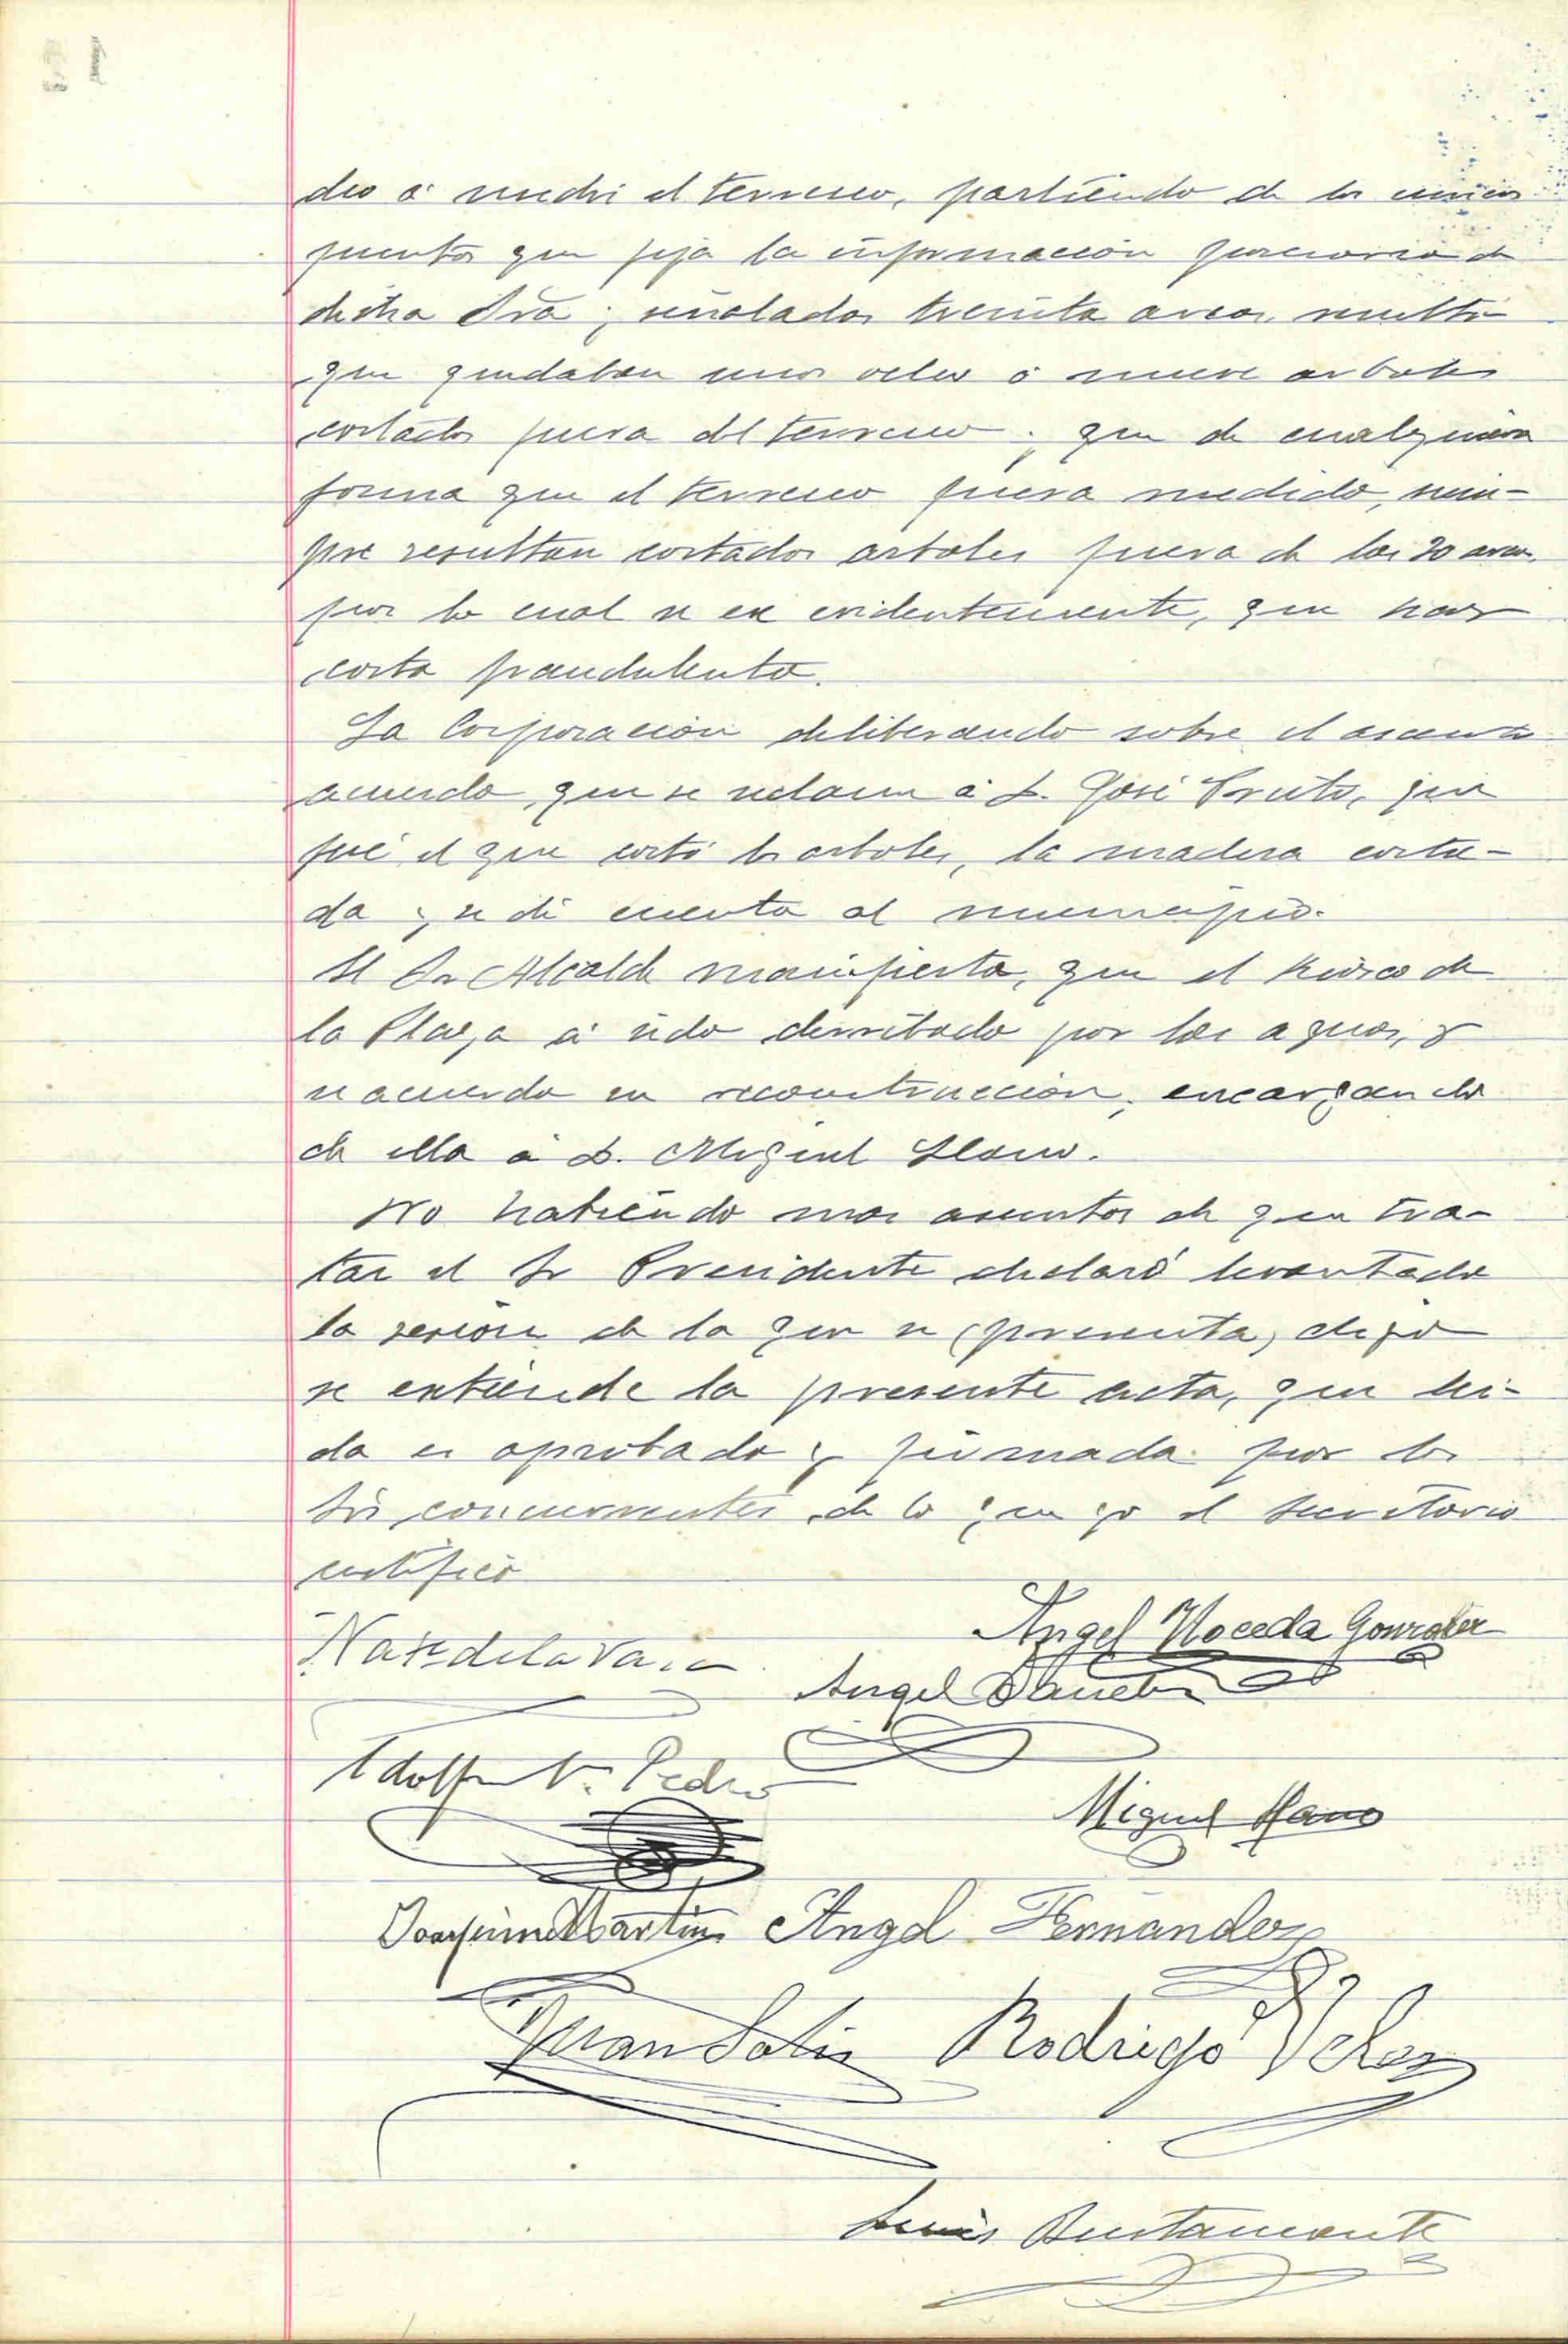 dió á medir el terreno, partiendo de los únicos
puntos que fija la información posesoria de
dicha Sra; señaladas treinta areas, resultó
que quedaban unos ocho ó nueve arboles
cortados fuera del terreno; que de cualquiera
forma que el terreno fuera medido, siem-
pre resultan cortados arboles fuera de las 30 areas,
por lo cual se ve evidentemente, que hay
corta fraudulenta.
La Corporación deliberando sobre el asunto
acuerda, que se reclame á D. José Pruto, que
fué el que cortó los arboles, la madera corta-
da y se dé cuenta al municipio.
El Sr Alcalde manifiesta, que el kiosco de
la Plaza á sido derribado por las aguas, y
se acuerda su reconstrucción, encargando
de ella á D. Miguel Llano.
No habiendo mas asuntos de que tra-
tar el Sr Presidente declaró levantada
la sesión de la que se (presenta) digo
se extiende la presente acta, que lei-
da es aprobada y firmada por los
Srs concurrentes, de lo que yo el Secretario
certifico
Angel Noceda Gonzalez
Nat. de la Vara
Angel Sanchez
Adolfo V. Pedro
Miguel Llano
Joaquin Martin Angel Fernandez
Juan Solis Rodrigo Velez
Luis Bustamante